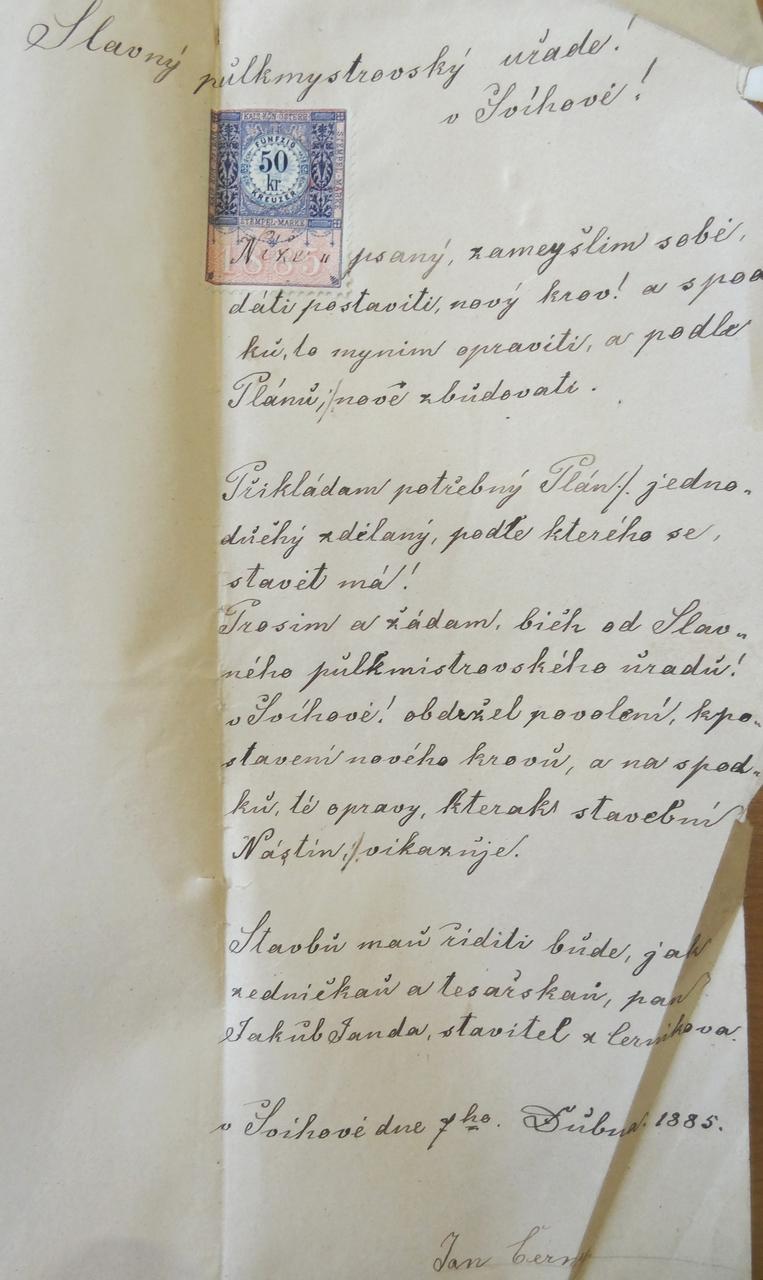 Slavný půlkmystrovský uřade!
v Svíhové!
KAIS. KÖN. ÖSTERR.
STEMPEL-MARKE
FÜNFZIG
50
kr
KREUZER
STEMPEL-MARKE
1885
Níže „ psaný, zameyšlim sobé,
dáti postaviti, nový krov! a spod
ků, to mynim opraviti, a podle
Plánů, ;/ nově zbůdovati.
Přikládam potřebný Plán ./. jedno„
důchý zdélaný, podle kterého se,
stavét má!
Prosim a žádam, bich od Slav„
ného půlkmistrovského ůradů!
v Svíhové! obdržel povolení, kpo„
stavení nového krovů, a na spod„
ků, té opravy, kterak stavební
Nástín, ;/ vikazuje.
Stavbů maů říditi bůde, jak
zedničkaů a tesařskaů, pan
Jakůb Janda, stavitel z Cernikova.
v Svíhové dne 7ho. Důbna 1885.
Jan Cerny